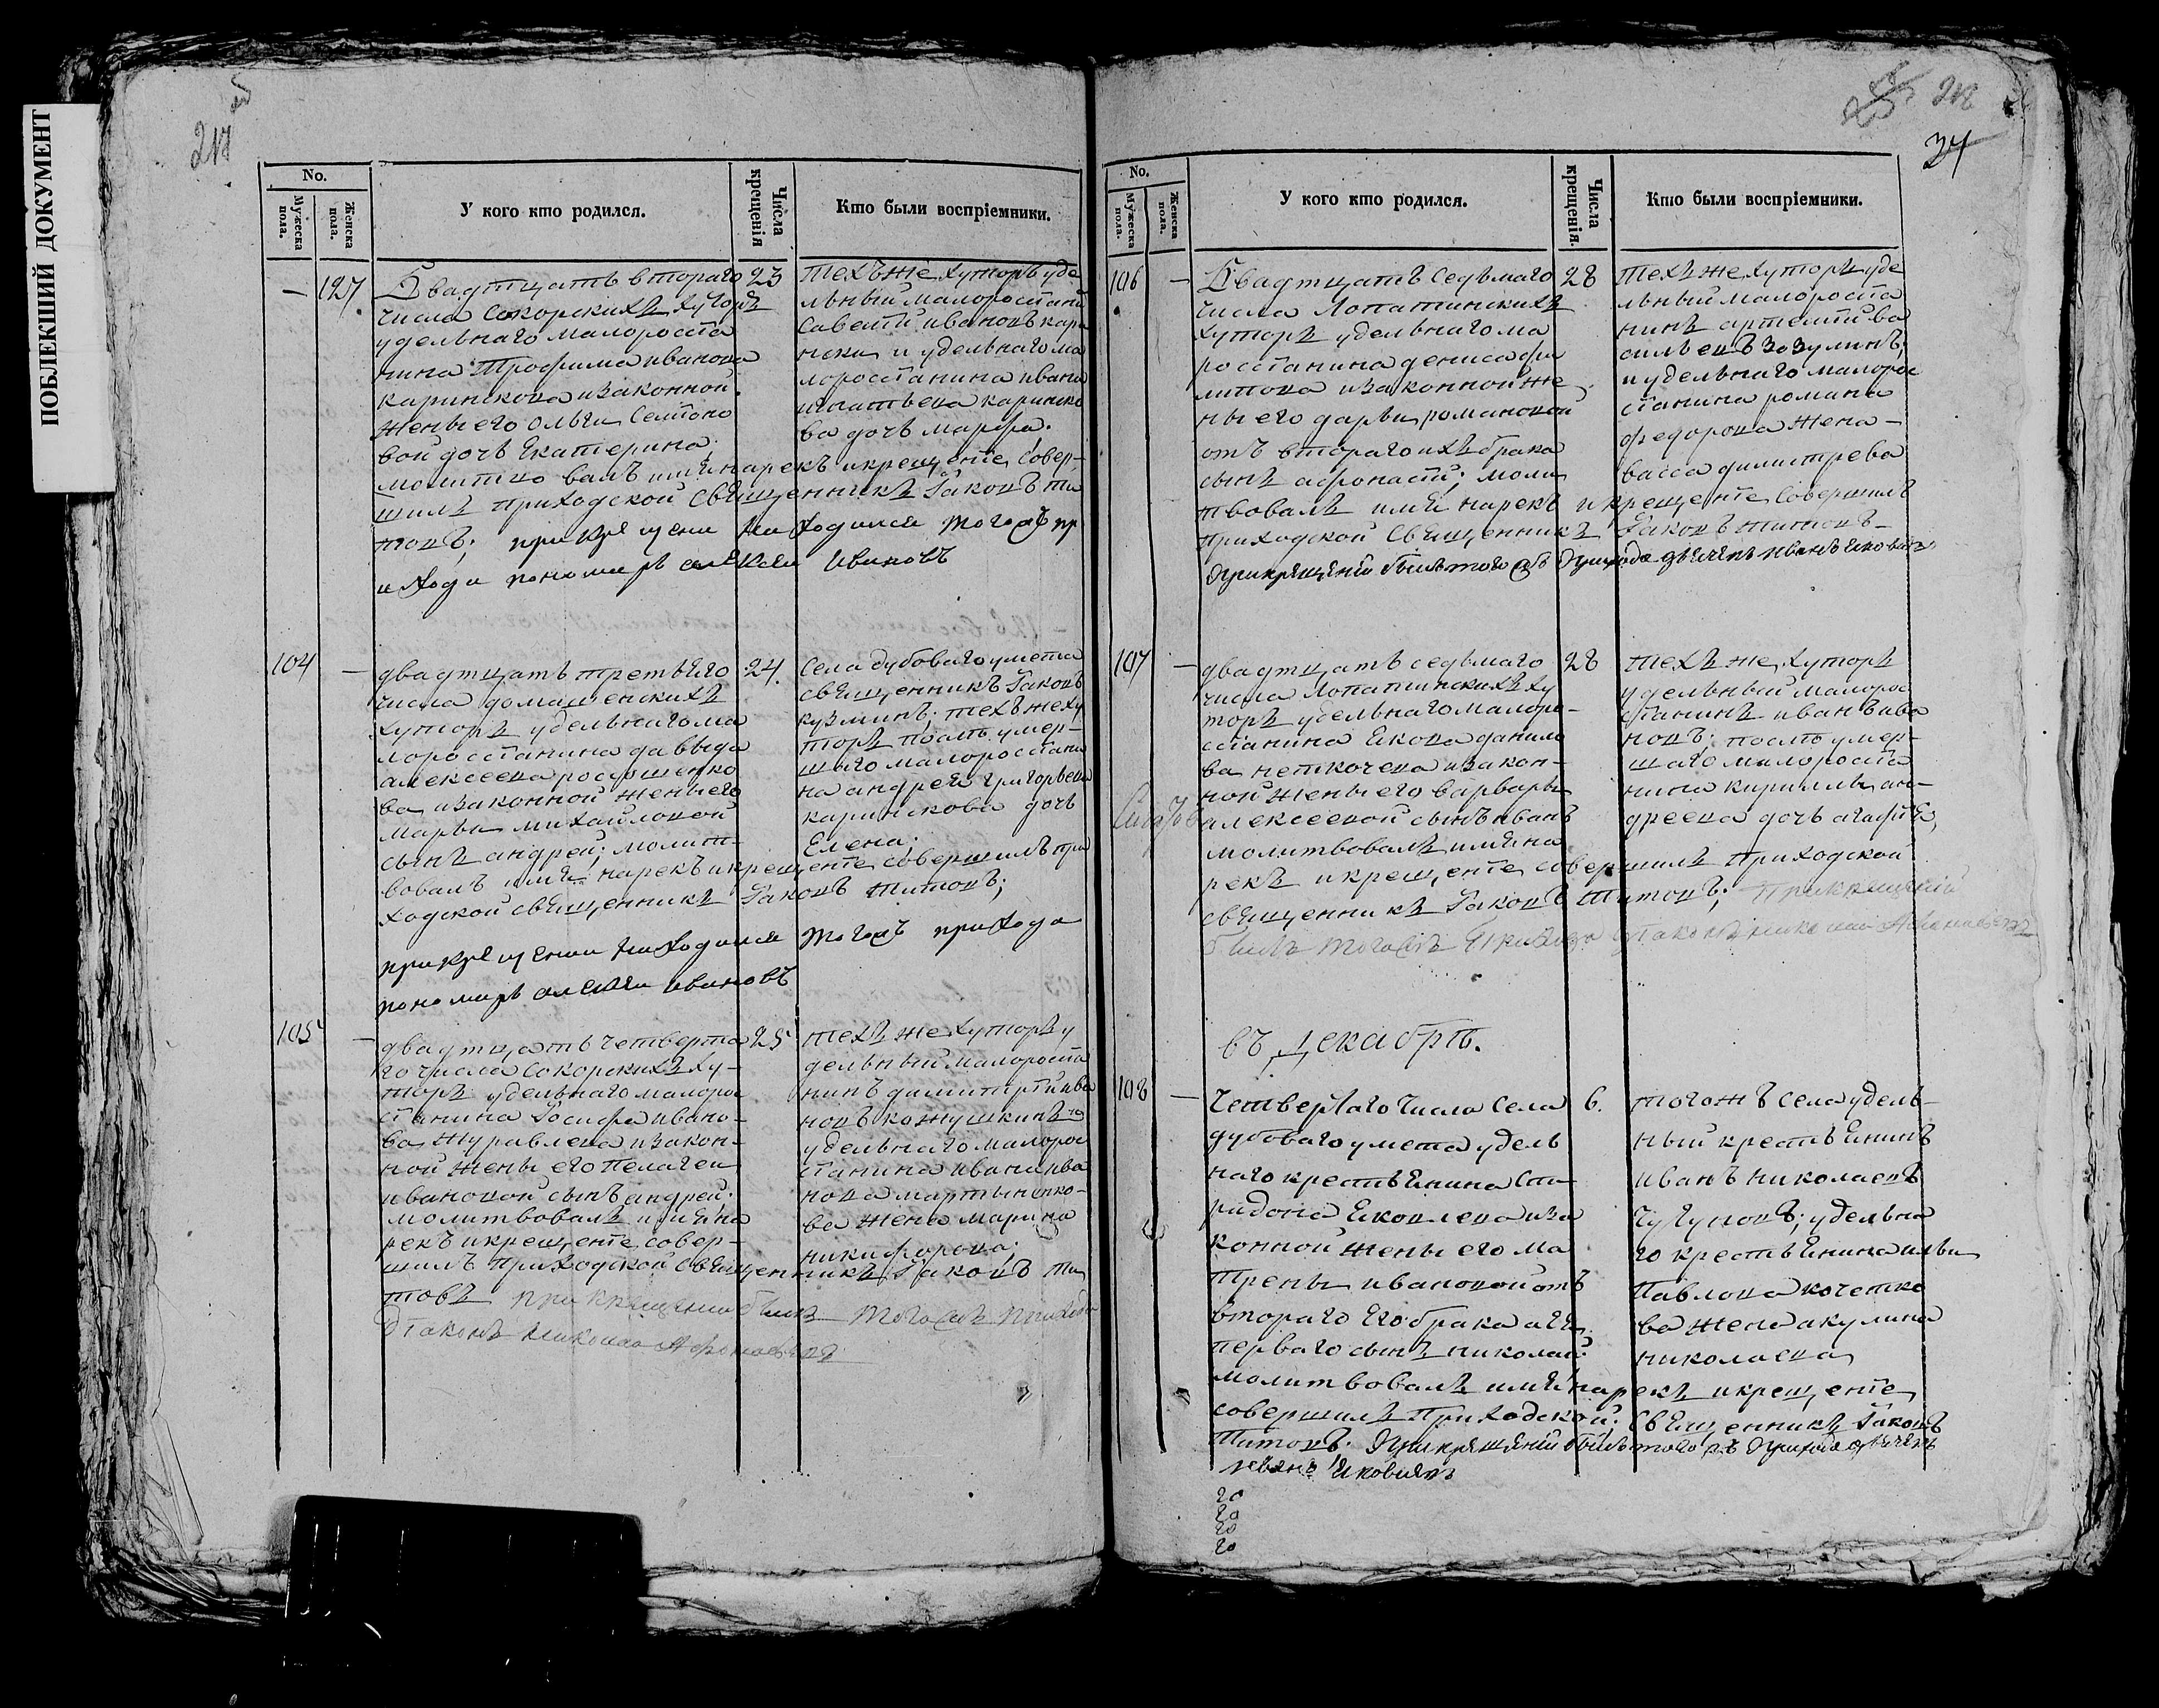 ПОБЛЕКШИЙ ДОКУМЕНТ
No.
Мужеска пола.
Женска пола.
У кого кто родился.
Числа крещенія
Кто были воспріемники.
127
Двадтцать втораго
числа Сокорскихъ хуторъ
удельнаго малоросія
нина Трофима иванова
каринскова изаконной
жены его ольги Семіоно
вой дочь Екатерина;
молитвовалъ имя нарекъ икрещеніе совер-
шилъ приходской священникъ Іаковъ ти
товъ; при крещении находился тогожъ пр
ихода пономарь алексеи Ивановъ
23
техъ же хуторъ уде
льный малоросіани
Савелій ивановъ кари
нски и удельнаго ма
лоросіанина ивана
игнатьева каринско
ва дочь марфа.
104
двадтцать третьяго
числа домашенскихъ
хуторъ удельнаго ма
лоросіанина давыда
алексеева росошенко
ва изаконной жены его
марьи михайловой
сынъ андрей; молит-
вовалъ имя нарекъ икрещеніе совершилъ при
ходской священникъ Іаковъ Титовъ;
при крещении находился тогожъ прихода
пономарь алексеи Ивановъ
24.
Села дубоваго умета
священникъ Іаковъ
кузминъ; техъ же ху
торъ послъ умер-
шаго малоросіани
на андрея григорьева
каринскова дочь
Елена;
105
двадтцать четверта
го числа Сокорскихъ ху-
торъ удельнаго малорос
сіанина Іосифа ивано-
ва Журавлева изакон-
ной жены его Пелагеи
ивановой сынъ андрей;
молитвовалъ имя на
рекъ икрещеніе совер-
шилъ приходской священникъ Іаковъ ти
товъ при крещении былъ тогожъ прихода
діаконъ Николаи Афонасьевъ
25
техъ же хуторъ у
дельный малоросія
нинъ димитрій ива
новъ кожушкинъ
удельнаго малорос
сіанина ивана ива
нова мартыненко-
ва жена марина
никифорова;
34
No.
Мужеска пола.
Женска пола.
У кого кто родился.
Числа крещенія.
Кто были воспріемники.
106
Двадтцать Седьмаго
числа Лопатинскихъ
хуторъ удельнаго ма
росіанина дениса фи
липова изаконной же
ны его дарьи романовой
отъ втораго ихъ брака
сынъ афонасій; моли
твовалъ имя нарекъ икрещеніе Совершилъ
приходской Священникъ Іаковъ титовъ-
28
техъ же хуторъ уде
льный малоросія
нинъ артемий ва
сильевъ Зозулинъ;
и удельнаго малорос
сіанина романа
федорова жена -
васса димитрева
107
двадтцать седьмаго
числа Лопатинскихъ ху
торъ удельнаго малоро-
ссіанина Екова данило
ва неткочева изакон-
ной жены его варвары
алексеевой сынъ иванъ
молитвовалъ имя на
рекъ икрещеніе совершилъ приходской
священникъ Іаковъ Титовъ; При крещении
былъ тогожъ прихода діаконъ Николаи Афонасьевъ
28
техъ же хуторъ
удельный малорос
сіанинъ иванъ ива
новъ; послъ умер-
шаго малоросія
нина кирилы ан-
дреева дочь агафия
въ декабръ.
108
Четвертаго числа Села
дубоваго умета удель
наго крестьянина Спи
ридона Яковлева иза
конной жены его ма
трены ивановой отъ
втораго его брака а ея
перваго сынъ николай:
молитвовалъ имя нарекъ икрещеніе
совершилъ приходской: Священникъ Іаковъ
Титовъ.
6.
тогожъ села удель-
ный крестьянинъ
иванъ николаевъ
Чугуновъ; удельна
го крестьянина ильи
Павлова кочетко
ва жена акулина
николаева
20
20
20
20